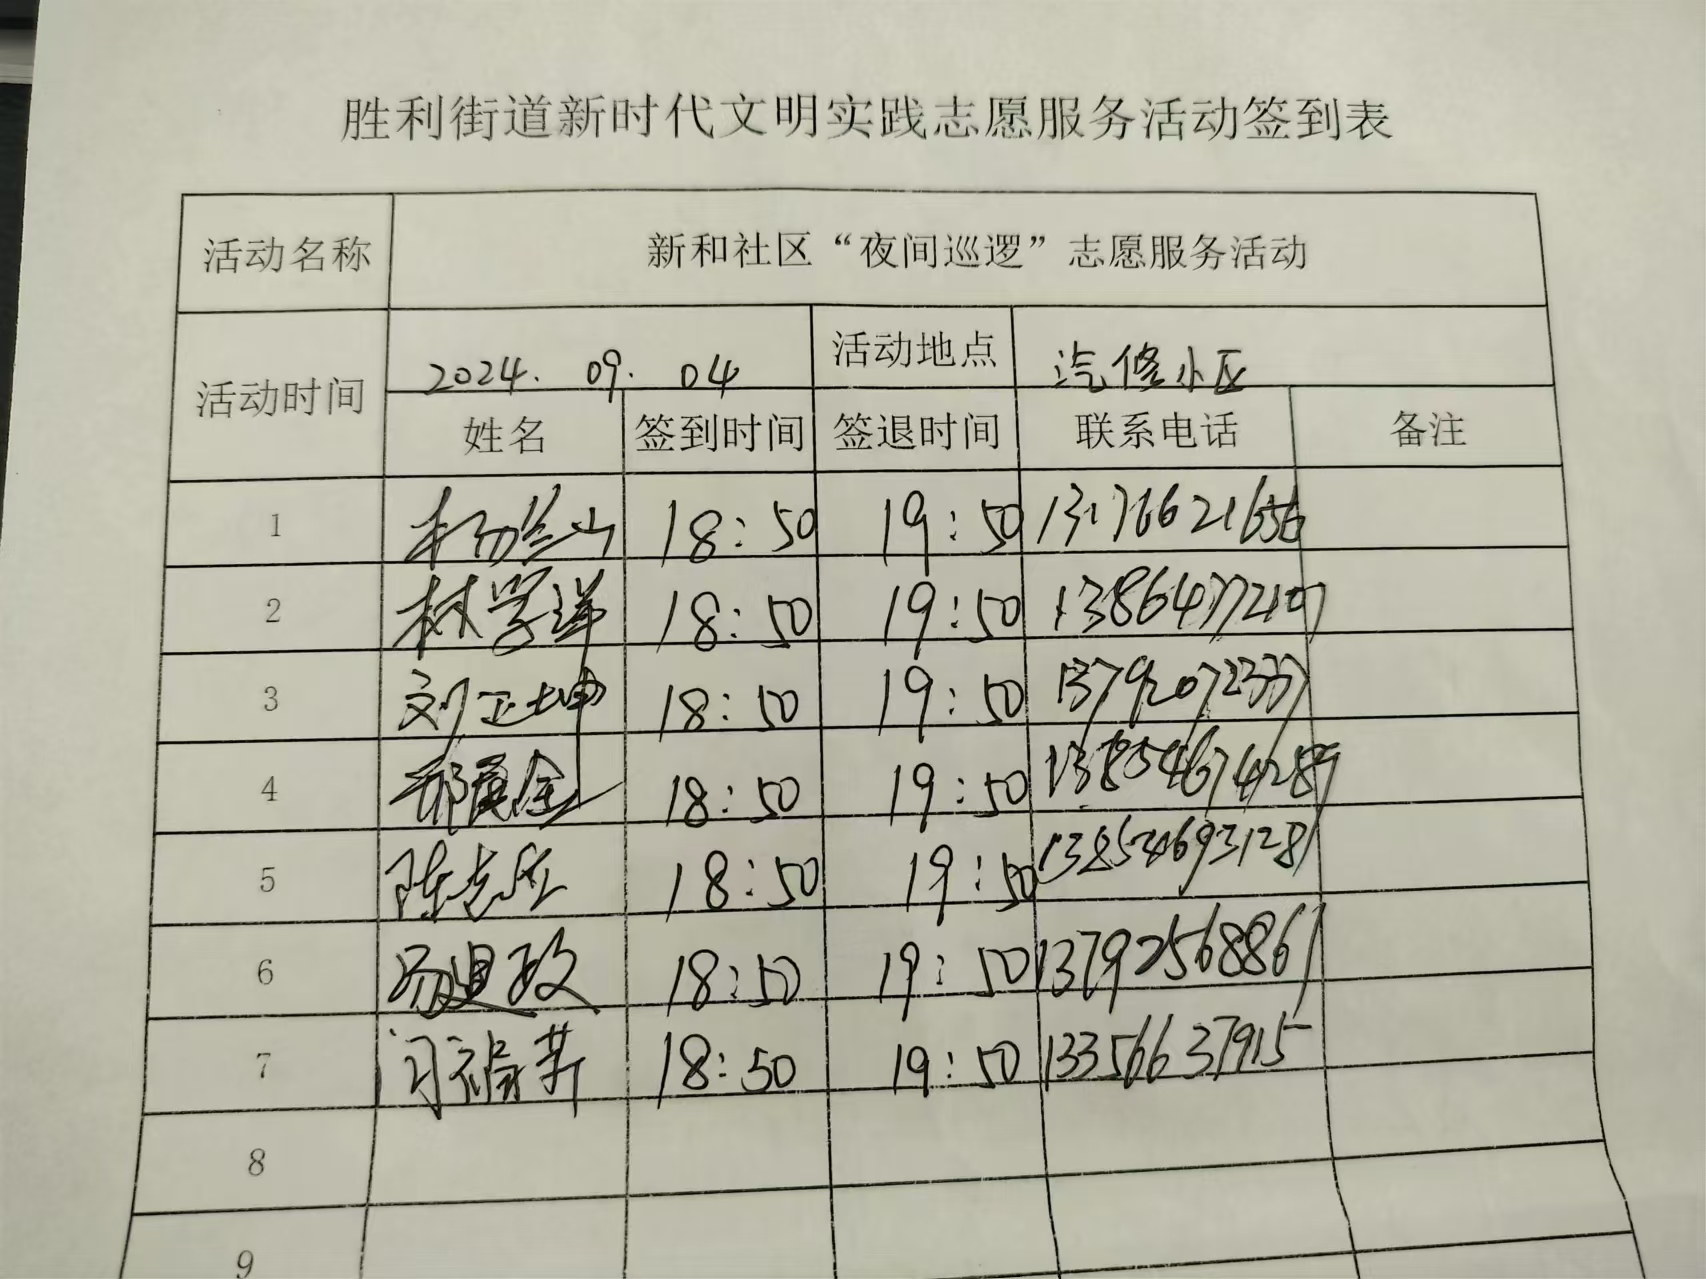 胜利街道新时代文明实践志愿服务活动签到表
活动名称 新和社区“夜间巡逻”志愿服务活动
活动时间 2024.09.04 活动地点 汽修小区
姓名 签到时间 签退时间 联系电话 备注
1 杨兰山 18:50 19:50 13176621656
2 林学洋 18:50 19:50 13864772107
3 刘正坤 18:50 19:50 13792072337
4 18:50 19:50 13854674289
5 陈志 18:50 19:50 13854693128
6 18:50 19:50 13792568861
7 闫福英 18:50 19:50 13356637915
8
9